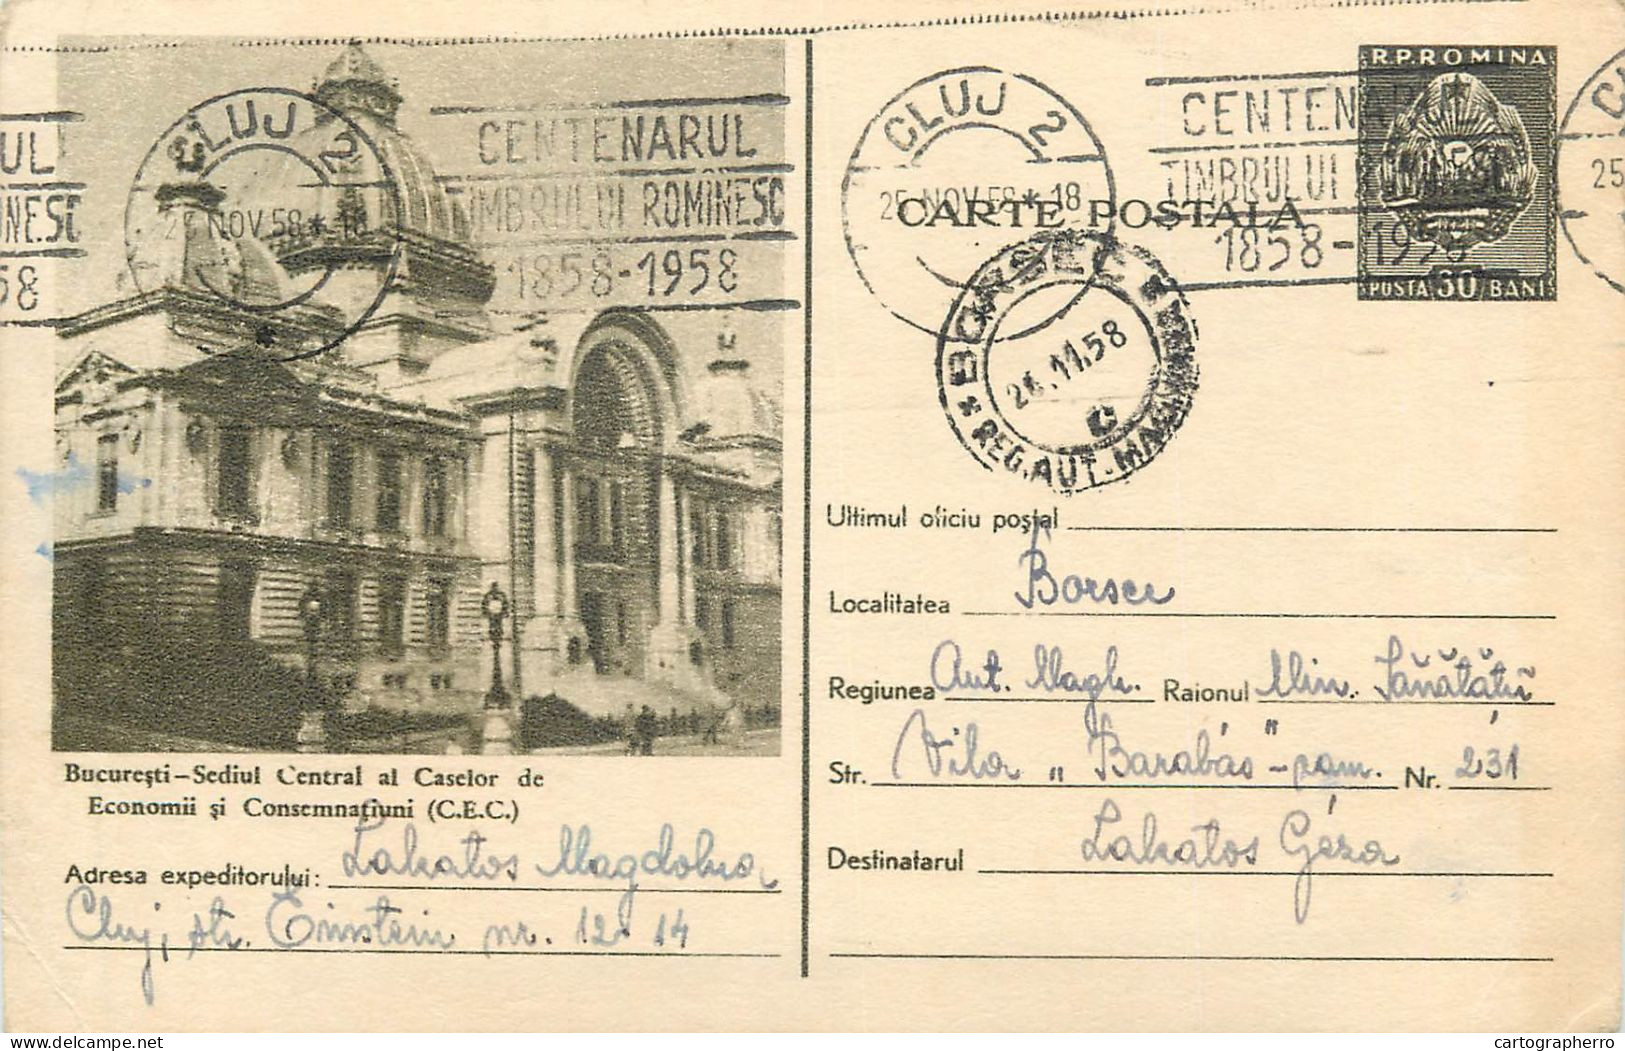 R.P.ROMINA
POSTA 30 BANI
CARTE POŞTALĂ
CLUJ 2
25 NOV.58 * 18
CENTENARUL
TIMBRULUI ROMÎNESC
1858-1958
CLUJ 2
25 NOV 58 * 18
CENTENARUL
TIMBRULUI ROMÎNESC
1858-1958
UL
NESC
58
25
BORSEC
REG. AUT. MAGHIARA
26.11.58
C
Ultimul oficiu poştal
Localitatea Borsec
Regiunea Aut. Magh. Raionul Min. Sănătății
Str. Vila „Barabás" - cam. Nr. 231
Destinatarul Lakatos Géza
Bucureşti – Sediul Central al Caselor de
Economii şi Consemnaţiuni (C.E.C.)
Adresa expeditorului: Lakatos Magdolna
Cluj, str. Einstein nr. 12-14
cartographerro